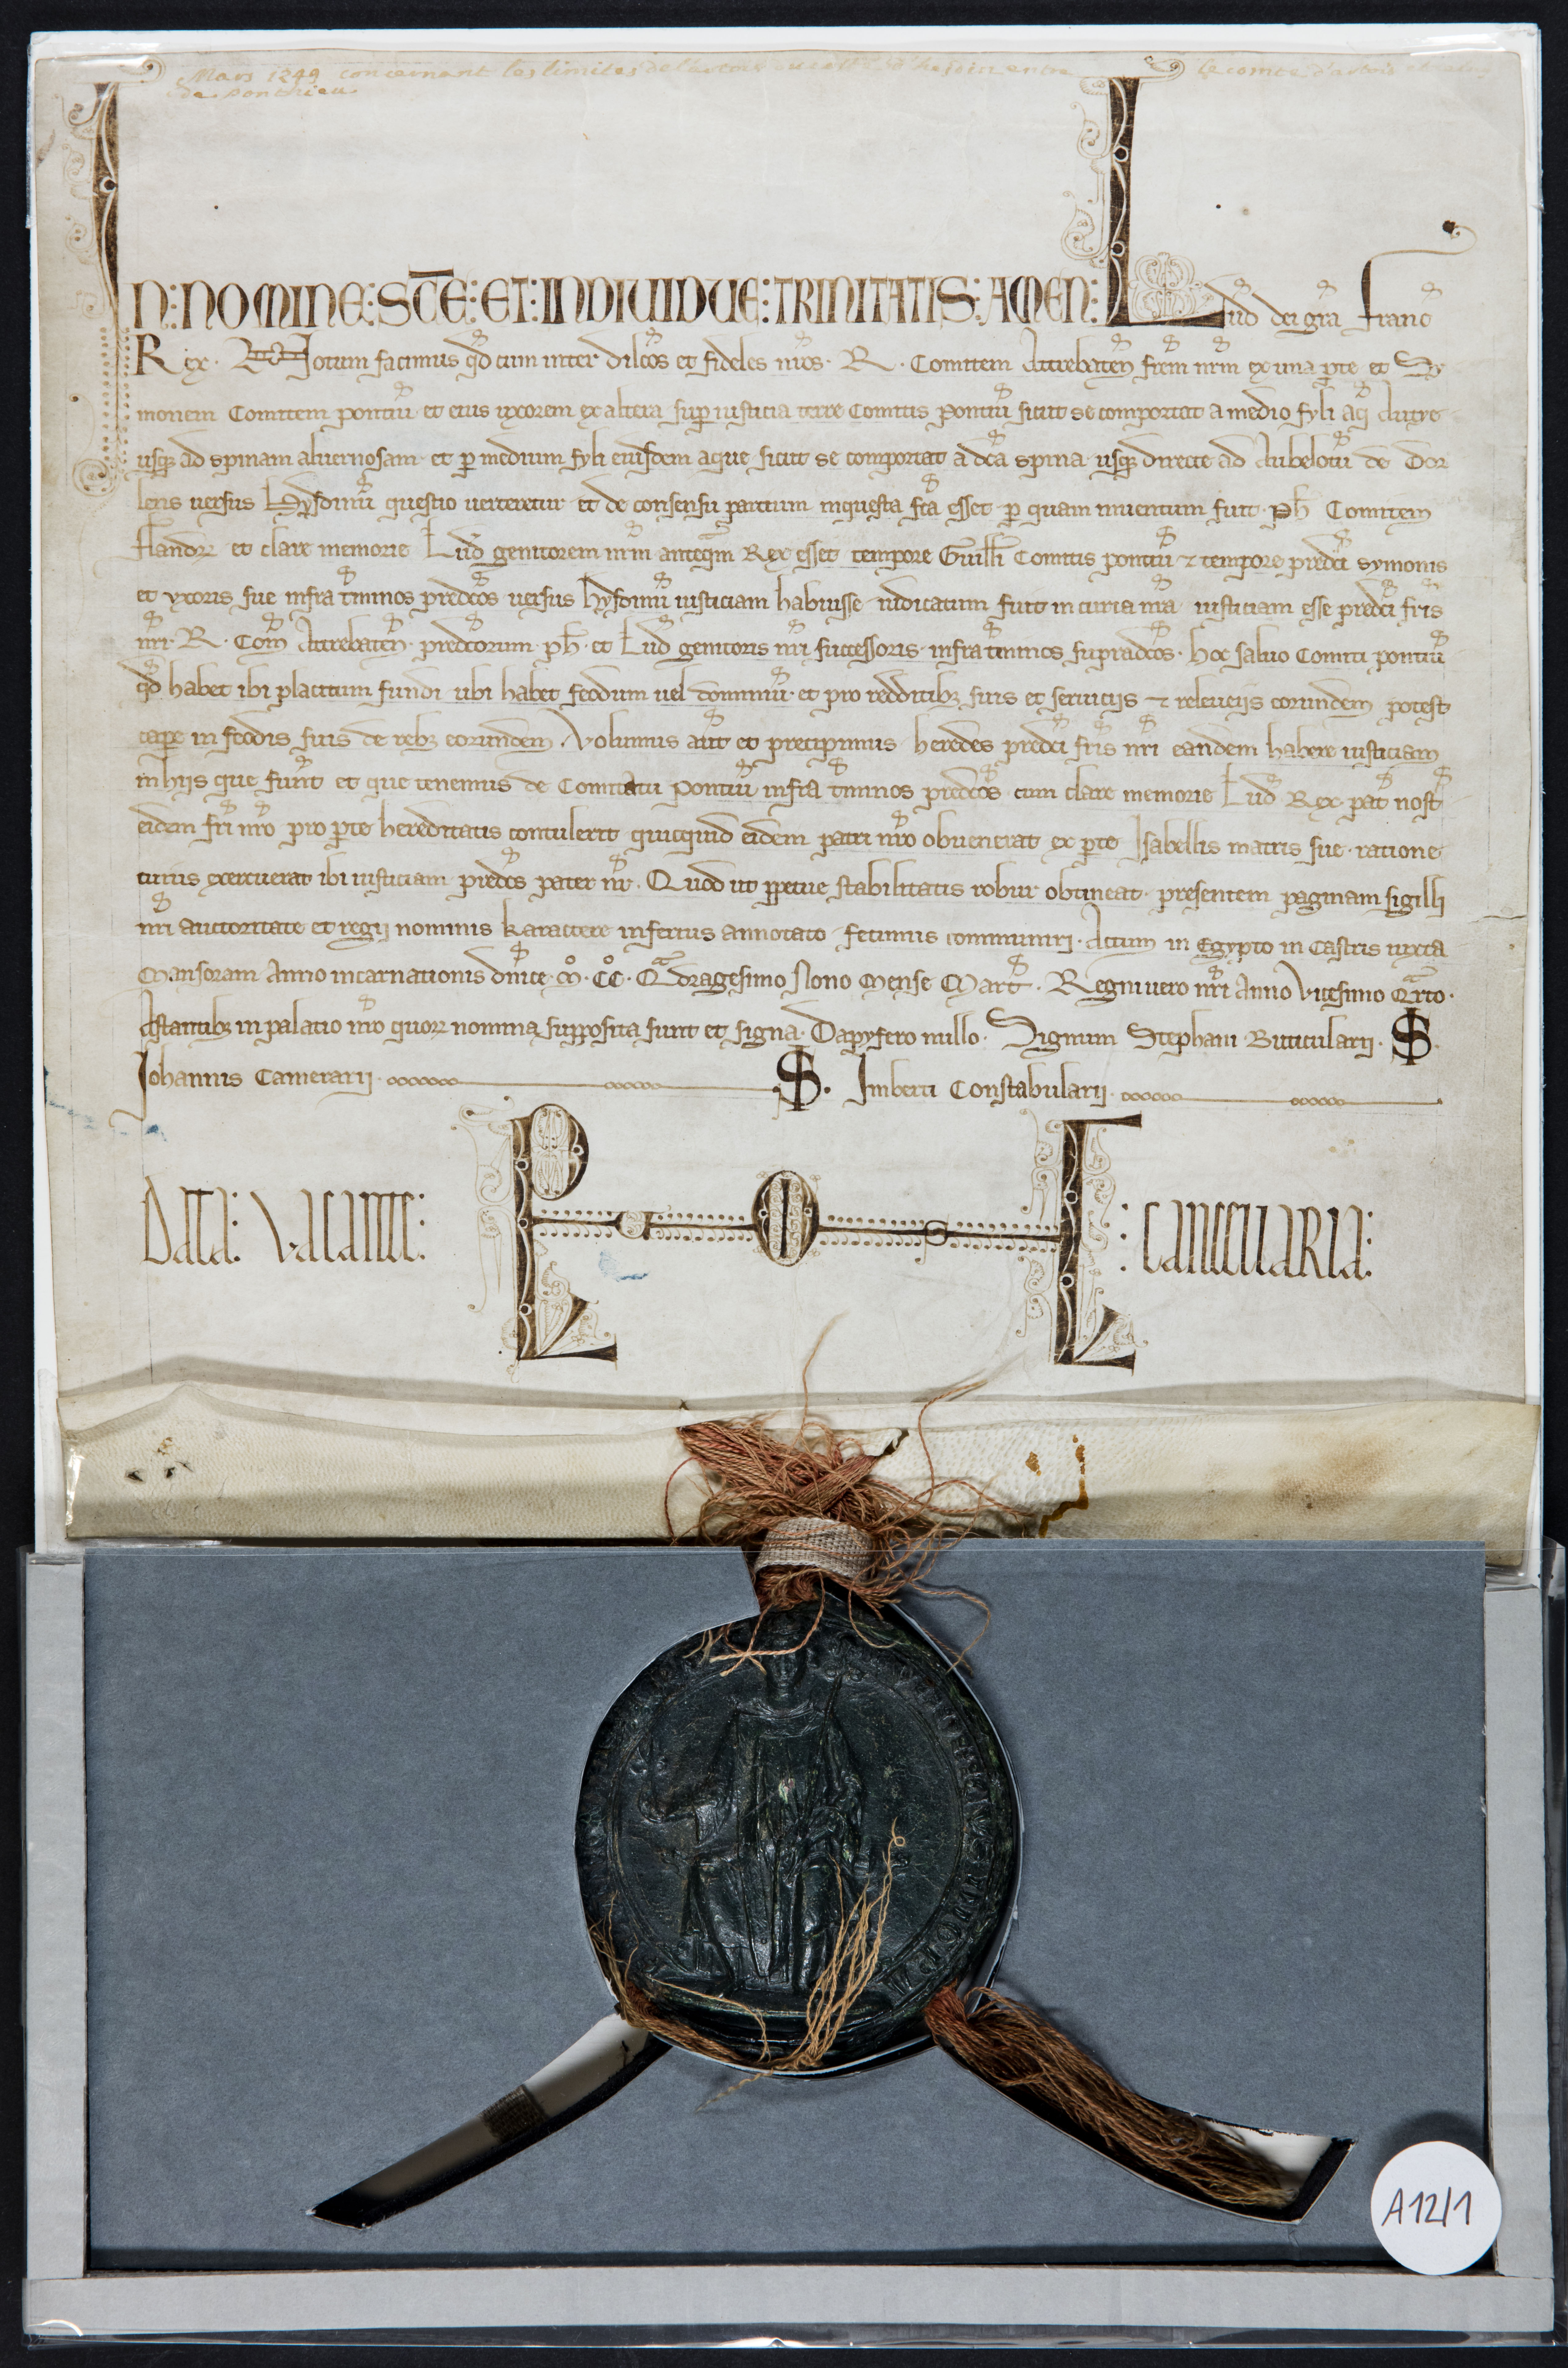 Mars 1249 concernant les limites de l'artois du côté d'hesdin entre le comte d'artois et celui
de Ponthieu
IN: NOMINE: SC̄E: ET: INDIUIDUE: TRINITATIS: AMEN: Lud̄ dei gr̄a Franc̄
Rex. Notum facimus qd̄ cum inter dilc̄os et fideles nr̄os. R. Comitem Attrebaten̄ fr̄em nr̄m ex una p̱te et Sy
monem Comitem pontiuī et eius uxorem ex altera sup̱ iusticia terre Comitis Pontiuī sicut se comportat a medio fyli aq̄ Autye
usqꝫ ad spinam aluernosam et p̱ medium fyli eiusdem aque sicut se comportat a dc̄a spina usqꝫ directe ad Aubelotū de Dor
lens uersus Hysdinū questio uerteretur et de consensu partium inquesta fc̄a esset p̱ quam inuentum fuit. Ph̄ Comitem
Flandrꝝ et clare memorie Lud̄ genitorem nr̄m anteq̄m Rex esset tempore Guill̄i Comitis pontiuī ⁊ tempore predc̄i symonis
et uxoris sue infra t̄minos predc̄os uersus hysdinū iusticiam habuisse iudicatum fuit in curia nr̄a iusticiam esse predc̄i fr̄is
nr̄i. R. Com̄ Attrebaten̄. predc̄orum. ph̄. et Lud̄ genitoris nr̄i successoris. infra t̄minos supradc̄os. hoc saluo Comiti pontiuī
qd̄ habet ibi placitum fundi ubi habet feodum uel dominiū. et pro redditibꝫ suis et seruiciis ⁊ releueijs eorundem potest
cap̱e in feodis suis de rebꝫ eorundem. Volumus aūt et precipimus heredes predc̄i fr̄is nr̄i eandem habere iusticiam
in hijs que sunt et que tenemus de Comitatu Pontiuī infra t̄minos predc̄os cum clare memorie Lud̄ Rex pat̄ nost̄
eidem fr̄i nr̄o pro p̱te hereditatis contulerit quicquid eidem patri nr̄o obuenerat ex p̱te Isabellis matris sue. ratione
cuius exercuerat ibi iusticiam predc̄s pater nr̄. Quod ut p̱petue stabilitatis robur obtineat. presentem paginam sigilli
nr̄i auctoritate et regij nominis karactere inferius annotato fecimus communiri. Actum in Egypto in Castris iuxta
Mansoram Anno incarnationis dn̄ice. Mº. CCº. Qᵃdragesimo Nono Mense Mart̄. Regni uero nr̄i Anno Vicesimo Qᵃrto.
Astantibꝫ in palatio nr̄o quorꝝ nomina supposita sunt et signa. Dapyfero nullo. Signum Stephani Buticularij. S.
Johannis Camerarij. S. Imberti Constabularij.
DATA: VACANTE: : CANCELLARIA:
A12/1